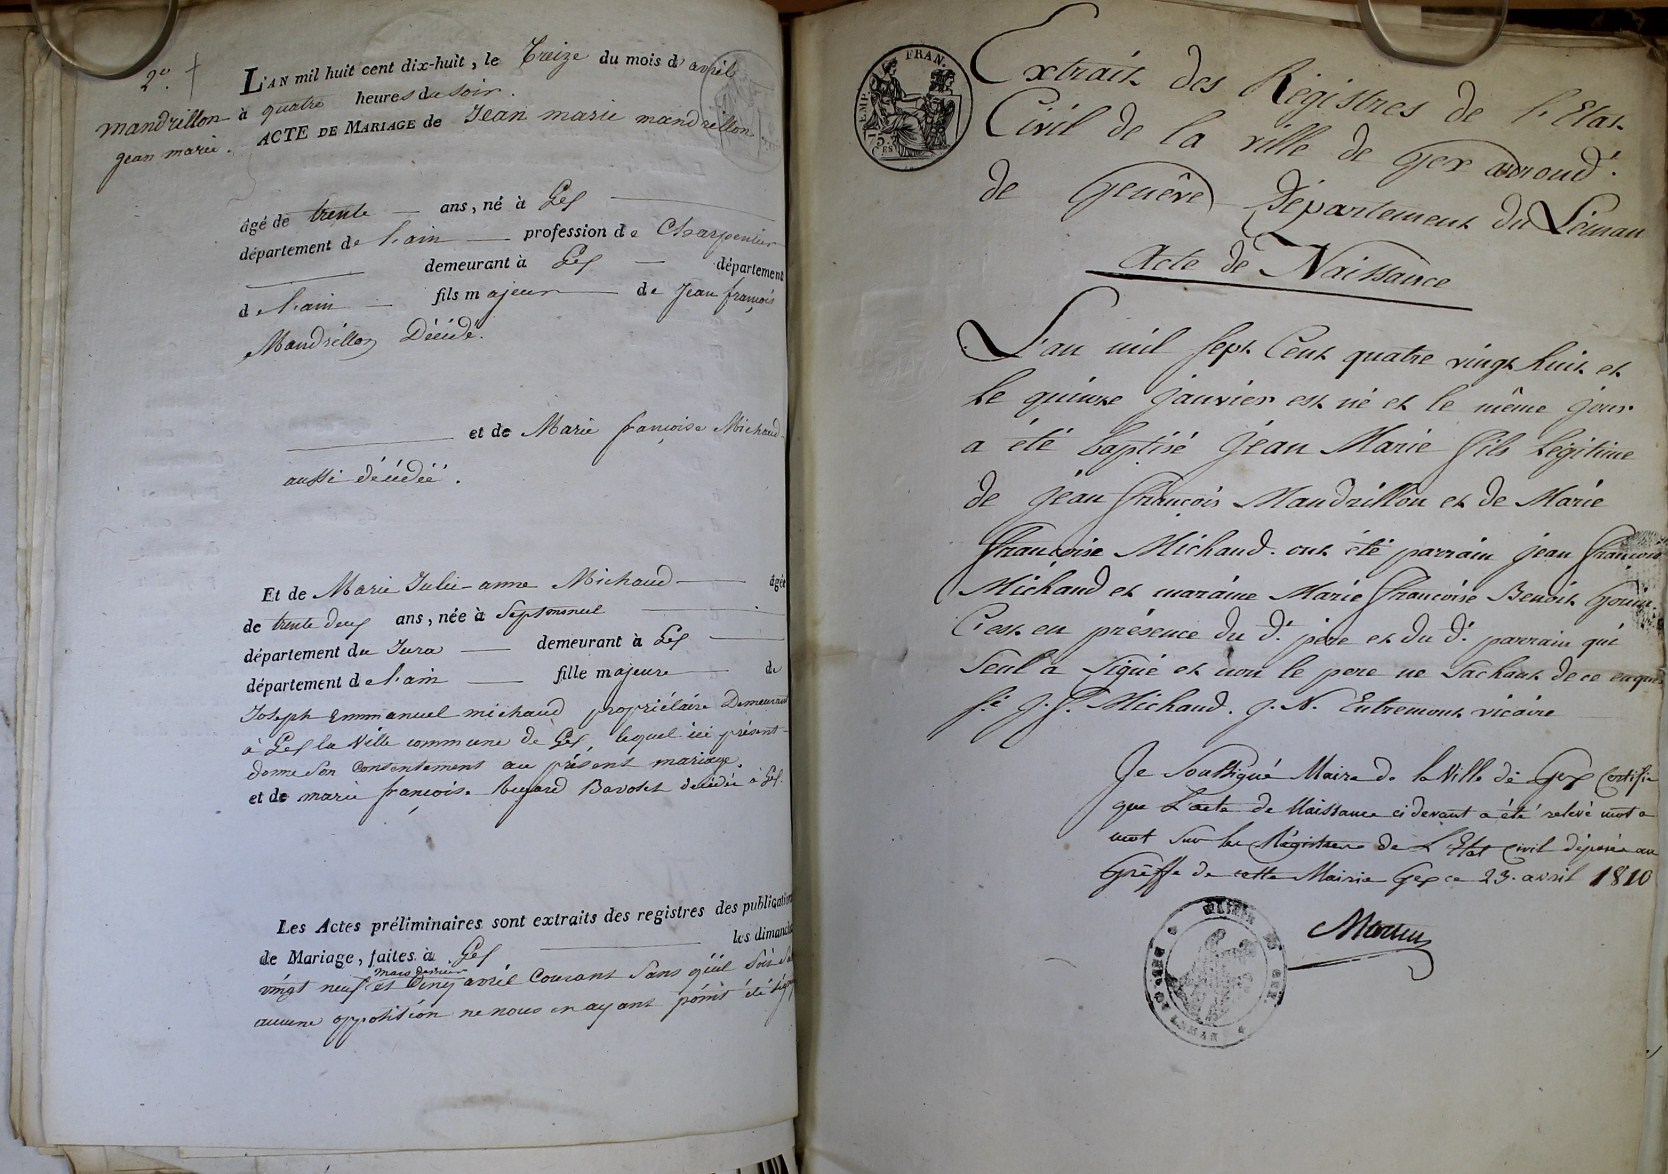 2e. †
mandrillon
jean marie.
L'AN mil huit cent dix-huit, le Treize du mois d'avril
à quatre heures du soir.
ACTE DE MARIAGE de Jean marie mandrillon
âgé de trente ans, né à Gex
département de l'ain profession de Charpentier
demeurant à Gex département
de l'ain fils majeur de Jean françois
Mandrillon Décédé.
et de Marie françoise Michaud
aussi décédée.
Et de Marie Julie anne Michaud âgée
de trente deux ans, née à Septmoncel
département du Jura demeurant à Gex
département de l'ain fille majeure de
Joseph Emmanuel michaud propriétaire Demeurant
à Gex la Ville commune de Gex, lequel ici présent
donne son consentement au présent mariage.
et de marie françoise décédée à Gex.
Les Actes préliminaires sont extraits des registres des publications
de Mariage, faites à Gex les dimanches
vingt neuf mars dernier et Cinq avril Courant Sans qu'il Soit
aucune opposition ne nous en ayant point été
EMP. FRAN.
75 CES
Extrait des Régistres de l'Etat
Civil de la ville de Gex arrond.t
de Genêve Département du Léman
Acte de Naissance
L'an mil sept Cent quatre vingt huit et
le quinze janvier est né et le même jour
a été baptisé Jean Marie fils légitime
de jean françois Mandrillon et de Marie
françoise Michaud. ont été parrain jean françois
Michaud et maraine Marie françoise Benoit
C'est en présence du d.t père et du d.t parrain qui
seul a signé et non le pere ne sachant de ce enquis
sé J. f. Michaud. J. N. Entremont vicaire
Je Soussigné Maire de la Ville de Gex Certifie
que l'acte de Naissance ci devant a été relevé mot a
mot sur les Régistres de l'Etat Civil déposés au
Greffe de cette Mairie Gex ce 23. avril 1810
MAIRIE DE GEX
DEP. DU LEMAN